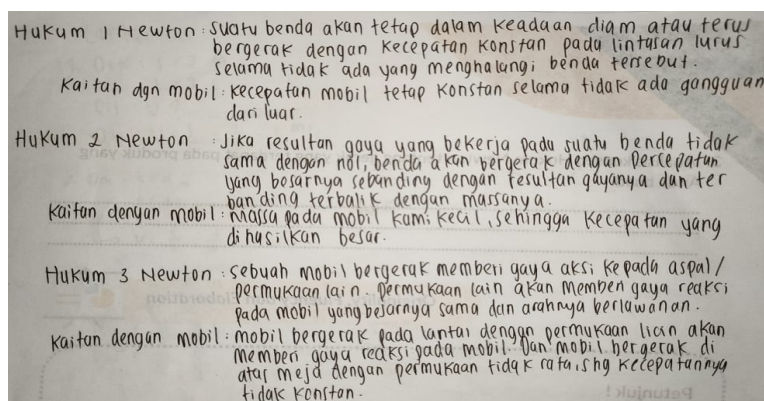 Hukum 1 Newton : suatu benda akan tetap dalam keadaan diam atau terus
bergerak dengan kecepatan konstan pada lintasan lurus
selama tidak ada yang menghalangi benda tersebut.
Kaitan dgn mobil : kecepatan mobil tetap konstan selama tidak ada gangguan
dari luar.
Hukum 2 Newton : Jika resultan gaya yang bekerja pada suatu benda tidak
sama dengan nol, benda akan bergerak dengan percepatan
yang besarnya sebanding dengan resultan gayanya dan ter
banding terbalik dengan massanya.
Kaitan dengan mobil : Massa pada mobil kami kecil, sehingga kecepatan yang
dihasilkan besar.
Hukum 3 Newton : sebuah mobil bergerak memberi gaya aksi kepada aspal/
permukaan lain. permukaan lain akan memberi gaya reaksi
pada mobil yang besarnya sama dan arahnya berlawanan.
Kaitan dengan mobil : mobil bergerak pada lantai dengan permukaan licin akan
memberi gaya reaksi pada mobil. Dan mobil bergerak di
atas meja dengan permukaan tidak rata, shg kecepatannya
tidak konstan.